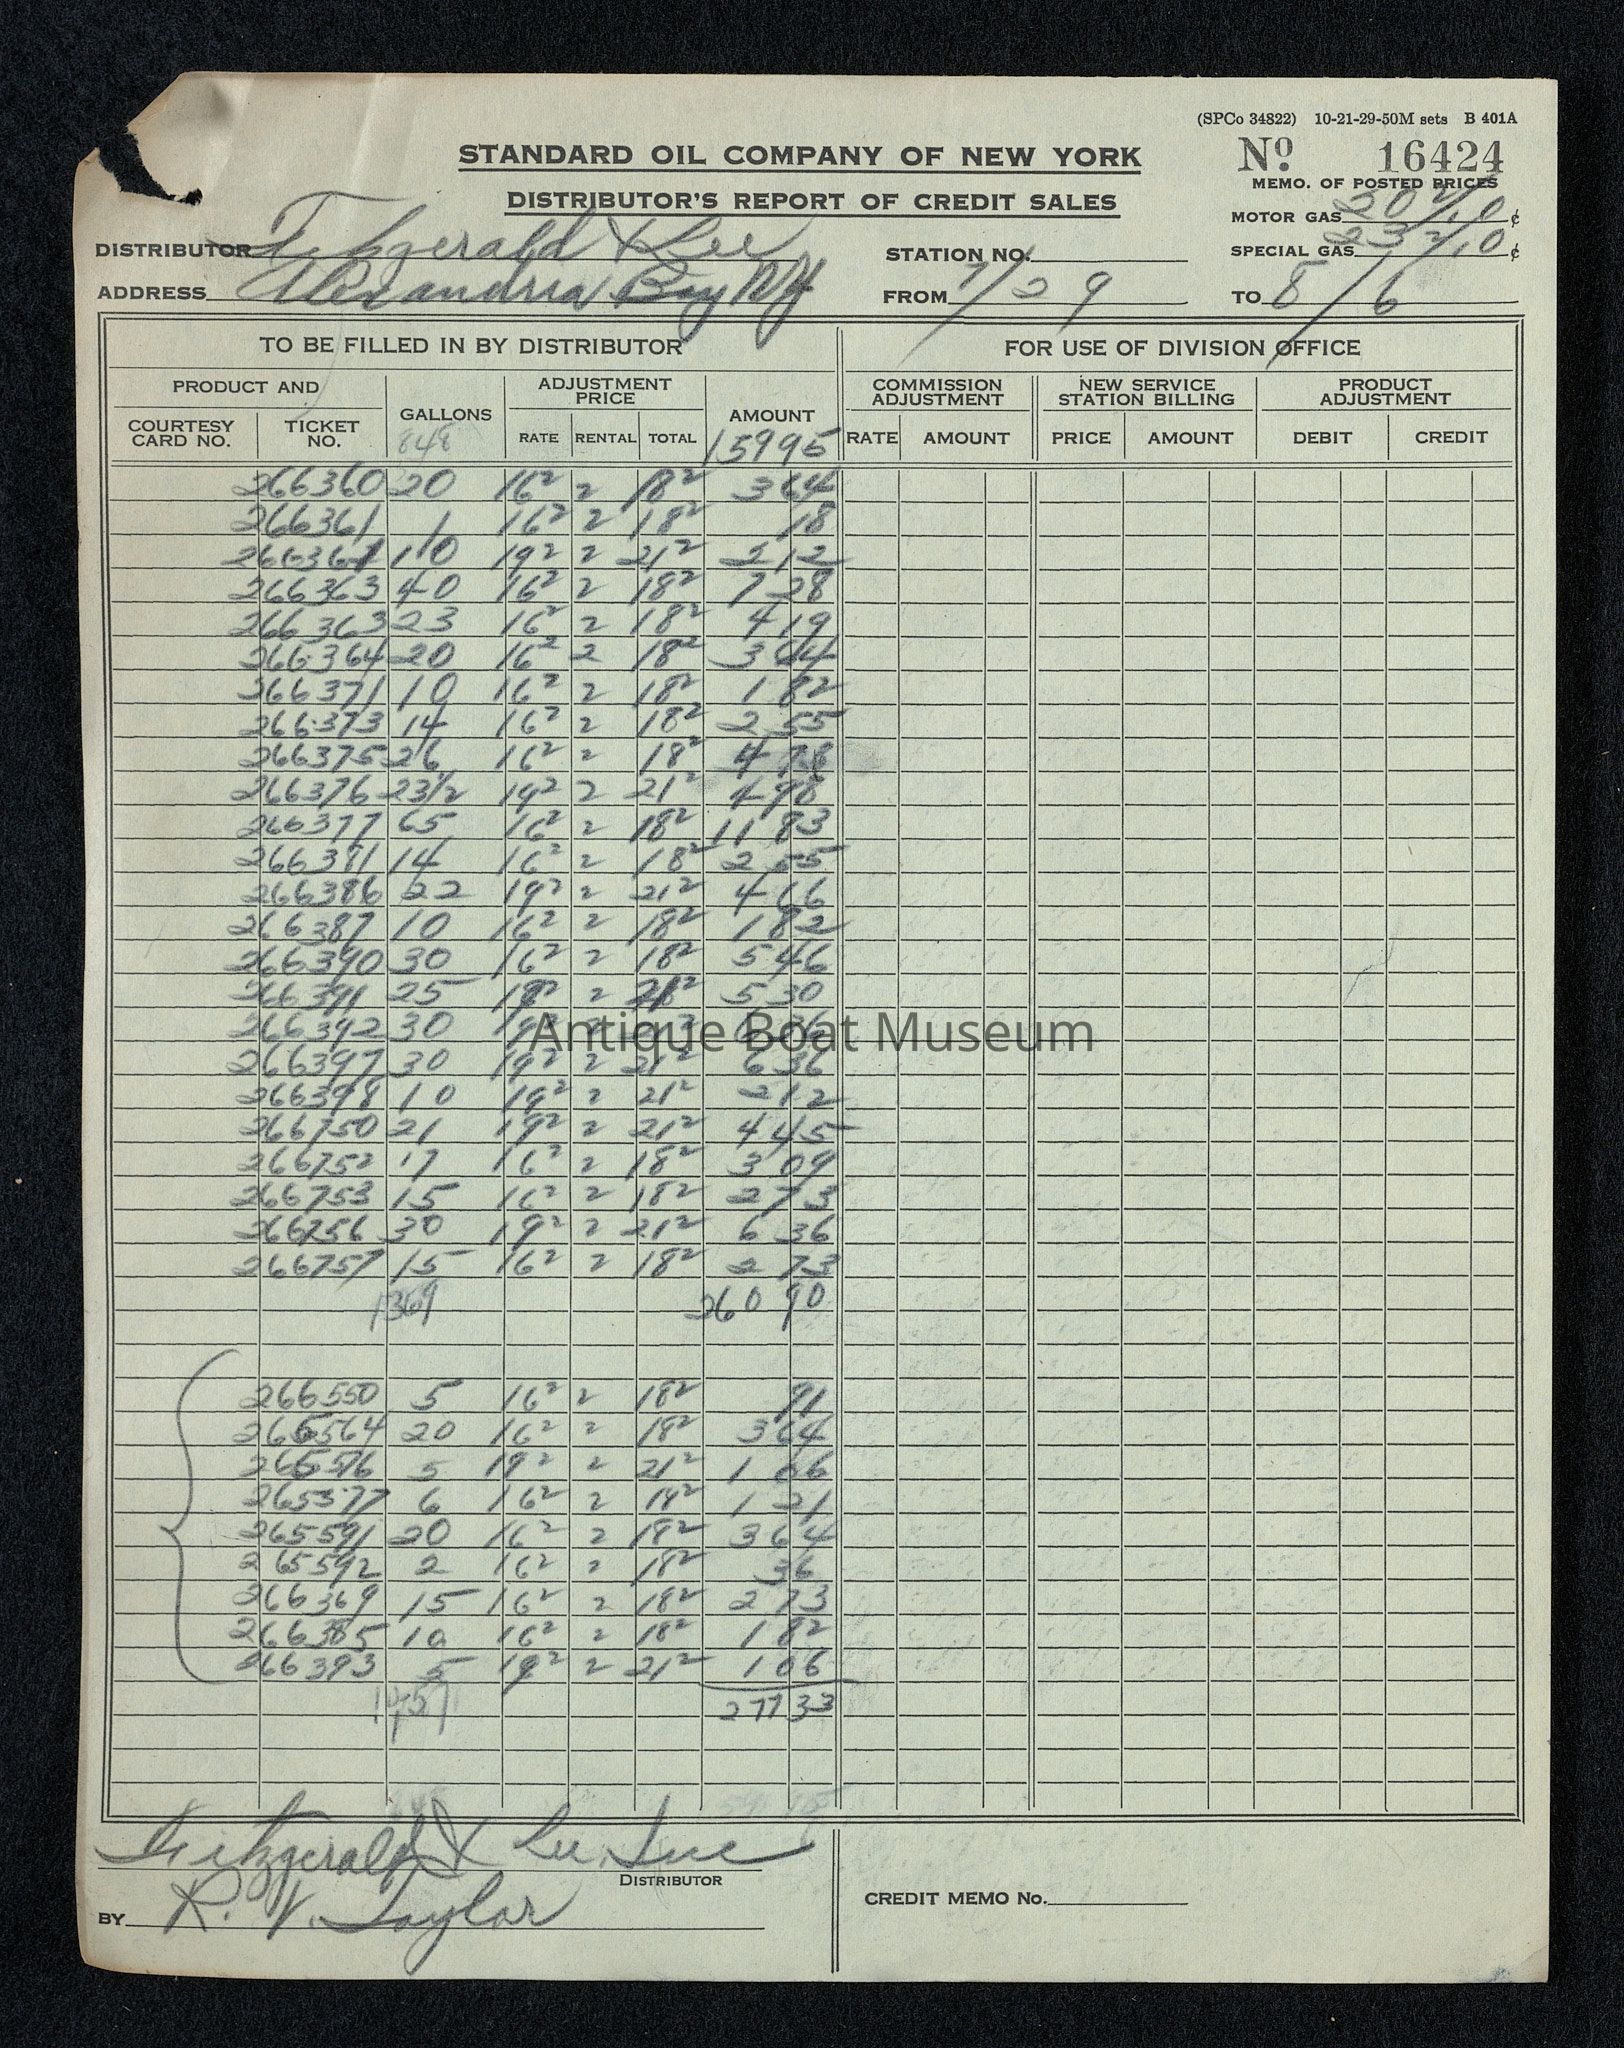 (SPCo 34822) 10-21-29-50M sets B 401A
STANDARD OIL COMPANY OF NEW YORK
No. 16424
DISTRIBUTOR'S REPORT OF CREDIT SALES
MEMO. OF POSTED PRICES
MOTOR GAS 20 2/10 ¢
DISTRIBUTOR Fitzgerald & Lee STATION NO. SPECIAL GAS 23 2/10 ¢
ADDRESS Alexandria Bay NY FROM 7/29 TO 8/6
TO BE FILLED IN BY DISTRIBUTOR FOR USE OF DIVISION OFFICE
PRODUCT AND GALLONS ADJUSTMENT PRICE AMOUNT COMMISSION ADJUSTMENT NEW SERVICE STATION BILLING PRODUCT ADJUSTMENT
COURTESY CARD NO. TICKET NO. RATE RENTAL TOTAL RATE AMOUNT PRICE AMOUNT DEBIT CREDIT
848 15995
266360 20 16² 2 18² 3 64
266361 1 16² 2 18² 18
10 19² 2 21² 2 12
266363 40 16² 2 18² 7 28
266363 23 16² 2 18² 4 19
266364 20 16² 2 18² 3 64
266371 10 16² 2 18² 1 82
266373 14 16² 2 18² 2 55
266375 26 16² 2 18² 4 73
266376 23 1/2 19² 2 21² 4 98
266377 65 16² 2 18² 11 83
266381 14 16² 2 18² 2 55
266386 22 19² 2 21² 4 66
266387 10 16² 2 18² 1 82
266390 30 16² 2 18² 5 46
266391 25 2 5 30
266392 30 19² 2 6 36
Antique Boat Museum
266397 30 19² 2 21² 6 36
266398 10 19² 2 21² 2 12
266750 21 19² 2 21² 4 45
266752 17 16² 2 18² 3 09
266753 15 16² 2 18² 2 73
266756 30 19² 2 21² 6 36
266757 15 16² 2 18² 2 73
1369 260 90
266550 5 16² 2 18² 91
20 16² 2 18² 3 64
5 19² 2 21² 1 06
6 16² 2 1 21
265591 20 16² 2 18² 3 64
265592 2 16² 2 18² 36
266369 15 16² 2 18² 2 73
266385 10 16² 2 18² 1 82
266393 5 19² 2 21² 1 06
1457 277 33
Fitzgerald & Lee, Inc
DISTRIBUTOR
BY R. V. Taylor
CREDIT MEMO No.